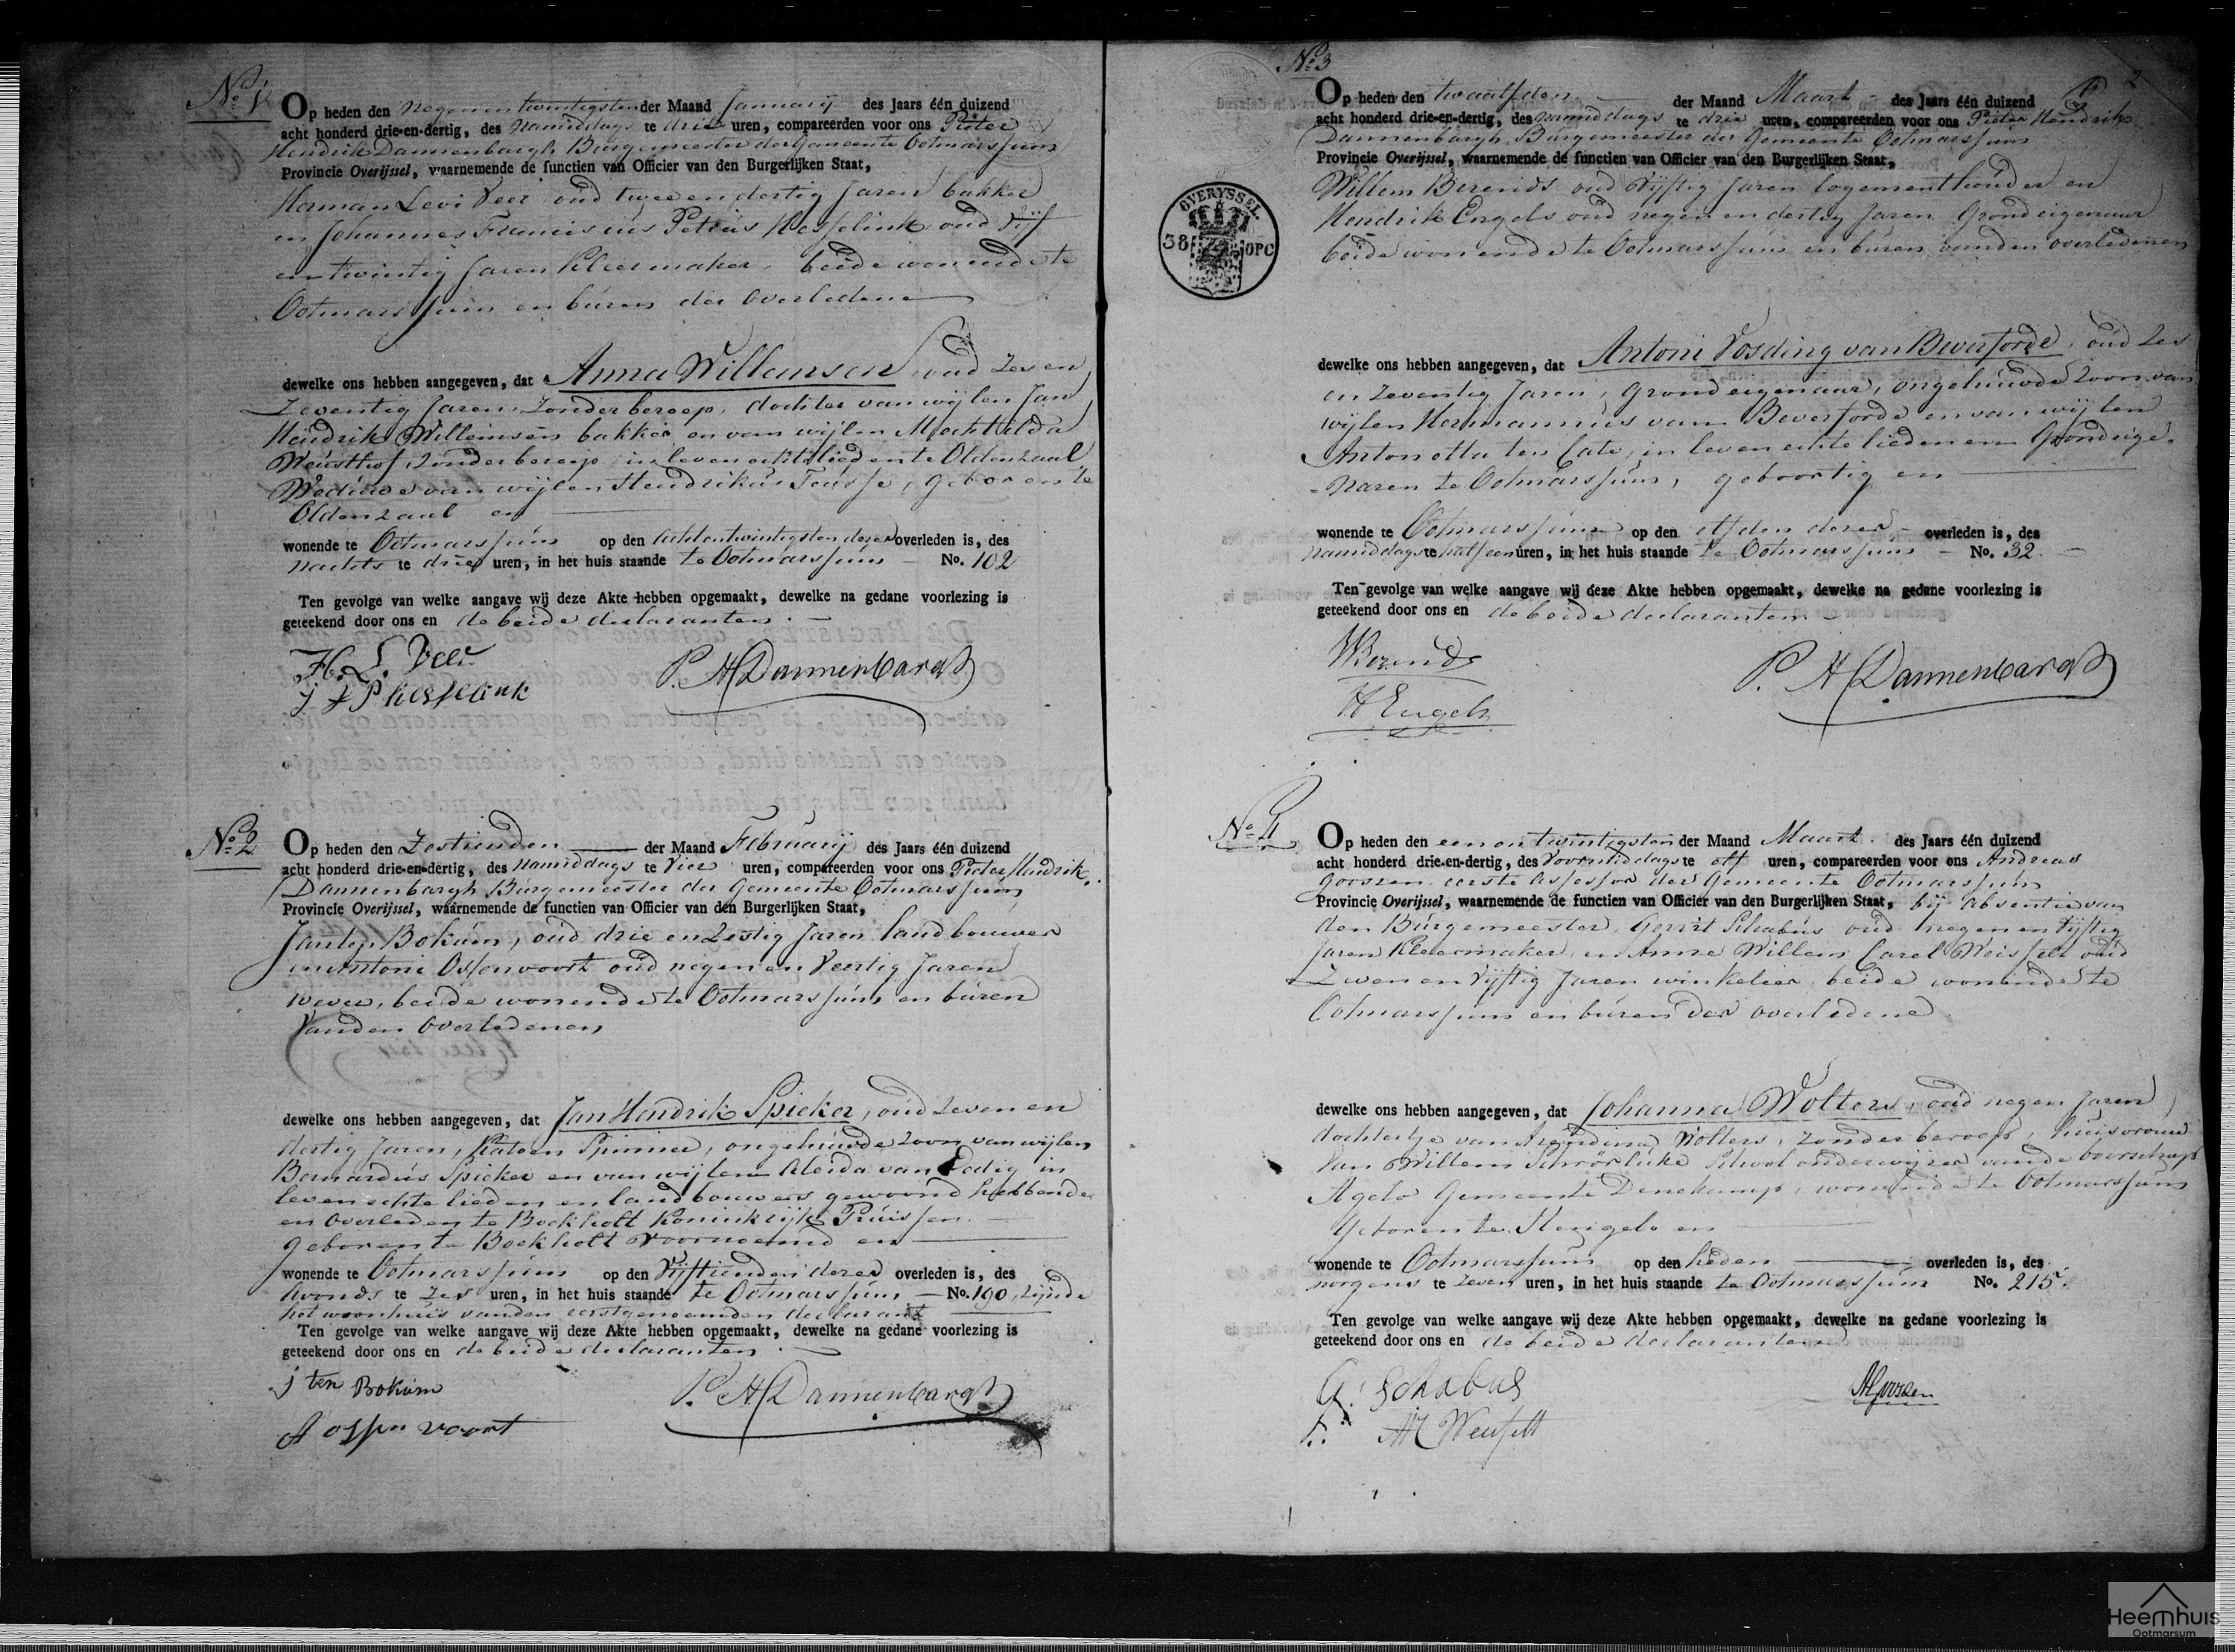 No 1
Op heden den negenentwintigsten der Maand Januarij des Jaars één duizend
acht honderd drie-en-dertig, des namiddags te drie uren, compareerden voor ons Pieter
Hendrik Dannenbargh Burgemeester der Gemeente Ootmarssum
Provincie Overijssel, waarnemende de functien van Officier van den Burgerlijken Staat,
Herman Levi Veer oud twee en dertig Jaren bakker
en Johannes Franciscus Petrus Hesselink oud vijf
en twintig Jaren kleermaker, beide wonende te
Ootmarssum en buren der Overledene
dewelke ons hebben aangegeven, dat Anna Willemsen, oud zes en
Zeventig Jaren, Zonder beroep, dochter van wijlen Jan
Hendrik Willemsen bakker en van wijlen Mechtilda
zonder beroep in leven echtelieden te Oldenzaal
Weduwe van wijlen Hendrikus geboren te
Oldenzaal en
wonende te Ootmarssum op den achtentwintigsten dezer overleden is, des
nachts te drie uren, in het huis staande te Ootmarssum - No. 102
Ten gevolge van welke aangave wij deze Akte hebben opgemaakt, dewelke na gedane voorlezing is
geteekend door ons en de beide declaranten.
H. L. Veer
J F P Hesselink
P. H Dannenbargh
No 2
Op heden den Zestienden der Maand Februarij des Jaars één duizend
acht honderd drie-en-dertig, des namiddags te Vier uren, compareerden voor ons Pieter Hendrik
Dannenbargh Burgemeester der Gemeente Ootmarssum
Provincie Overijssel, waarnemende de functien van Officier van den Burgerlijken Staat,
Jan ten Bokum, oud drie en Zestig Jaren landbouwer
en Antoni Ossenvoort oud negen en Veertig Jaren
wever, beide wonende te Ootmarssum en buren
van den Overledenen
dewelke ons hebben aangegeven, dat Jan Hendrik Spieker, oud zeven en
dertig Jaren, Katoen Spinner, ongehuwde zoon van wijlen
Bernardus Spieker en van wijlen Aleida van in
leven echte lieden en landbouwers gewoond hebbende
en Overleden te Bockholt Koninkrijk Pruissen.
geboren te Bockholt voornoemd en
wonende te Ootmarssum op den Vijftienden dezer overleden is, des
Avonds te zes uren, in het huis staande te Ootmarssum - No. 190, zijnde
het woonhuis van den eerstgenoemden declarant
Ten gevolge van welke aangave wij deze Akte hebben opgemaakt, dewelke na gedane voorlezing is
geteekend door ons en de beide declaranten.
j ten Bokum
A ossen voort
P. H Dannenbargh
No 3
2
Op heden den twaalfden der Maand Maart des Jaars één duizend
acht honderd drie-en-dertig, des namiddags te drie uren, compareerden voor ons Pieter Hendrik
Dannenbargh, Burgemeester der Gemeente Ootmarssum
Provincie Overijssel, waarnemende de functien van Officier van den Burgerlijken Staat,
Willem Berends oud Vijftig Jaren logementhouder en
Hendrik Engels oud negen en dertig Jaren Grondeigenaar
beide wonende te Ootmarssum en buren van den overledenen
OVERYSSEL.
38 OPC
dewelke ons hebben aangegeven, dat Antoni Vosding van Beverforde, oud zes
en zeventig Jaren, Grondeigenaar, ongehuwde Zoon van
wijlen Hermannus van Beverforde en van wijlen
Antonetta ten Cate, in leven echte lieden en Grondeige-
-naren te Ootmarssum, geboortig en
wonende te Ootmarssum op den elfden dezer overleden is, des
namiddags te half een uren, in het huis staande te Ootmarssum - No. 32
Ten gevolge van welke aangave wij deze Akte hebben opgemaakt, dewelke na gedane voorlezing is
geteekend door ons en de beide declaranten
WBerends
H Engels
P. H Dannenbargh
No 4
Op heden den een en twintigsten der Maand Maart des Jaars één duizend
acht honderd drie-en-dertig, des Voormiddags te elf uren, compareerden voor ons Andreas
Goossen eerste Assessor der Gemeente Ootmarssum
Provincie Overijssel, waarnemende de functien van Officier van den Burgerlijken Staat, bij Absentie van
den Burgemeester, Gerrit Schabus oud negen en Vijftig
Jaren Kleermaker, en Anne Willem Carel oud
Zeven en Vijftig Jaren winkelier, beide wonende te
Ootmarssum en buren der overledene
dewelke ons hebben aangegeven, dat Johanna Wolters, oud negen Jaren
dochtertje van Wolters, zonder beroep, huisvrouw
Van Willem School onderwijzer van de boerschap
Agelo Gemeente Denekamp, wonende te Ootmarssum
Geboren te Hengelo en
wonende te Ootmarssum op den heden overleden is, des
morgens te zeven uren, in het huis staande te Ootmarssum No. 215.
Ten gevolge van welke aangave wij deze Akte hebben opgemaakt, dewelke na gedane voorlezing is
geteekend door ons en de beide declaranten
G. Schabus
AGoossen
Heemhuis
Ootmarsum